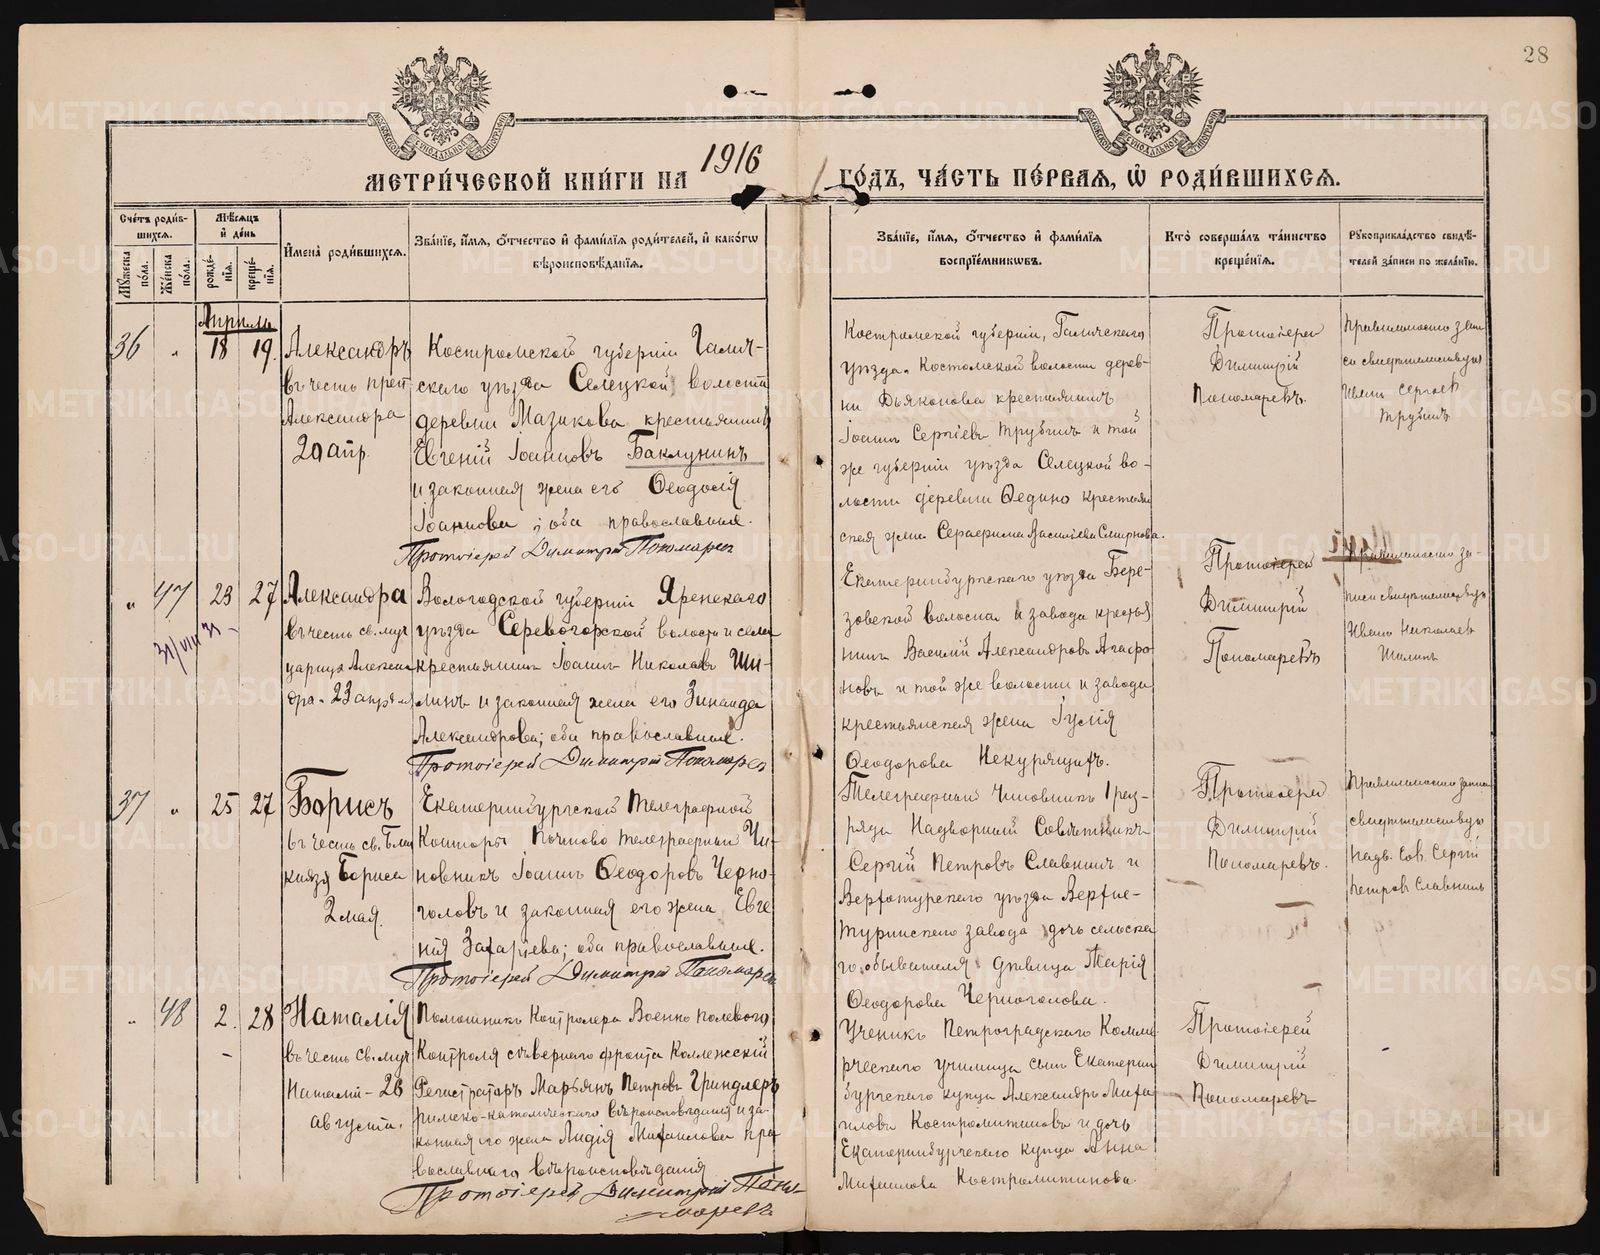 28
МЕТРИ́ЧЕСКОЙ КНИ́ГИ НА 1916 ГО́ДЪ, ЧА́СТЬ ПЕ́РВАЯ, Ѡ РОДИ́ВШИХСЯ.
Сче́тъ роди́в-
шихся.
Му́жеска по́ла.
Же́нска по́ла.
Мѣ́сяцъ и҆ де́нь
рожде́-
нїя.
креще́-
нїя.
И҆мена̀ роди́вшихся.
Зва́нїе, и҆́мя, о҆́тчество и҆ фами́лїя роди́телей, и҆ како́гѡ
вѣроисповѣ́данїя.
Зва́нїе, и҆́мя, о҆́тчество и҆ фами́лїя
воспрїе́мникѡвъ.
Кто̀ соверша́лъ та́инство
креще́нїя.
Рꙋкоприкла́дство свидѣ́-
телей за́писи по жела́нїю.
Апрѣль
36 " 18 19.
Александръ
въ честь преп
Александра
20 апр.
Костромской губерніи Галич-
скаго уѣзда Селецкой волости
деревни Мазикова крестьянинъ
Евгеній Іоанновъ Баклунинъ
и законная жена его Ѳеодосія
Іоаннова; оба православные.
Протоіерей Димитрій Пономаревъ
Костромской губерніи, Галичскаго
уѣзда. Костомской волости дерев-
ни Дьяконова крестьянинъ
Іоаннъ Сергіевъ Трубинъ и той
же губерніи уѣзда Селецкой во-
лости деревни Ѳедино крестьян
ская жена Серафима Василіева Смирнова.
Протоіерей
Димитрій
Пономаревъ.
Правильность запи
си свидѣтельствую
Иванъ Сергѣев
Трубинъ
" 47 23 27
31/VIII 31
Александра
въ честь св. муч
царицы Алексан
дра. 23 апрѣля
Вологодской губерніи Яренскаго
уѣзда Серевогорской волости и села
крестьянинъ Іоаннъ Николаевъ Ши-
линъ и законная жена его Зинаида
Александрова; оба православные.
Протоіерей Димитрій Пономаревъ
Екатеринбургскаго уѣзда Бере-
зовской волости и завода кресть
нинъ Василій Александровъ Агафо-
новъ и той же волости и завода
крестьянская жена Іулія
Ѳеодорова Некурящихъ.
Протоіерей
Димитрій
Пономаревъ
Правильность за-
писи свидѣтельствую
Иванъ Николаев
Шилинъ
37 " 25 27
Борисъ
въ честь св. Благ
князя Бориса
2 мая.
Екатеринбургской Телеграфной
Конторы Почтово телеграфный Чи-
новникъ Іоаннъ Ѳеодоровъ Черно-
головъ и законная его жена Евге
нія Захаріева; оба православные.
Протоіерей Димитрій Пономаревъ
Телеграфный Чиновникъ I раз-
ряда Надворный Совѣтникъ
Сергій Петровъ Славнинъ и
Верхотурскаго уѣзда Верхне-
Туринскаго завода дочь сельска
го обывателя дѣвица Марія
Ѳеодорова Черноголова.
Протоіерей
Димитрій
Пономаревъ.
Правильность записи
свидѣтельствую
Надв. Сов. Сергій
Петров Славнинъ
" 48 2. 28
Наталія
въ честь св. муч
Наталіи - 26
августа.
Помощникъ Контролера Военно полевого
Контроля сѣвернаго фронта Коллежскій
Регистраторъ Марьянъ Петровъ Гриндлеръ
римско-католическаго вѣроисповѣданія и за-
конная его жена Лидія Михаилова пра
вославнаго вѣроисповѣданія
Протоіерей Димитрій Поно-
маревъ
Ученикъ Петроградскаго Комме
рческаго училища сынъ Екатерин
бургскаго купца Александръ Миха
иловъ Костромитиновъ и дочь
Екатеринбургскаго купца Анна
Михаилова Костромитинова.
Протоіерей
Димитрій
Пономаревъ
METRIKI.GASO-URAL.RU